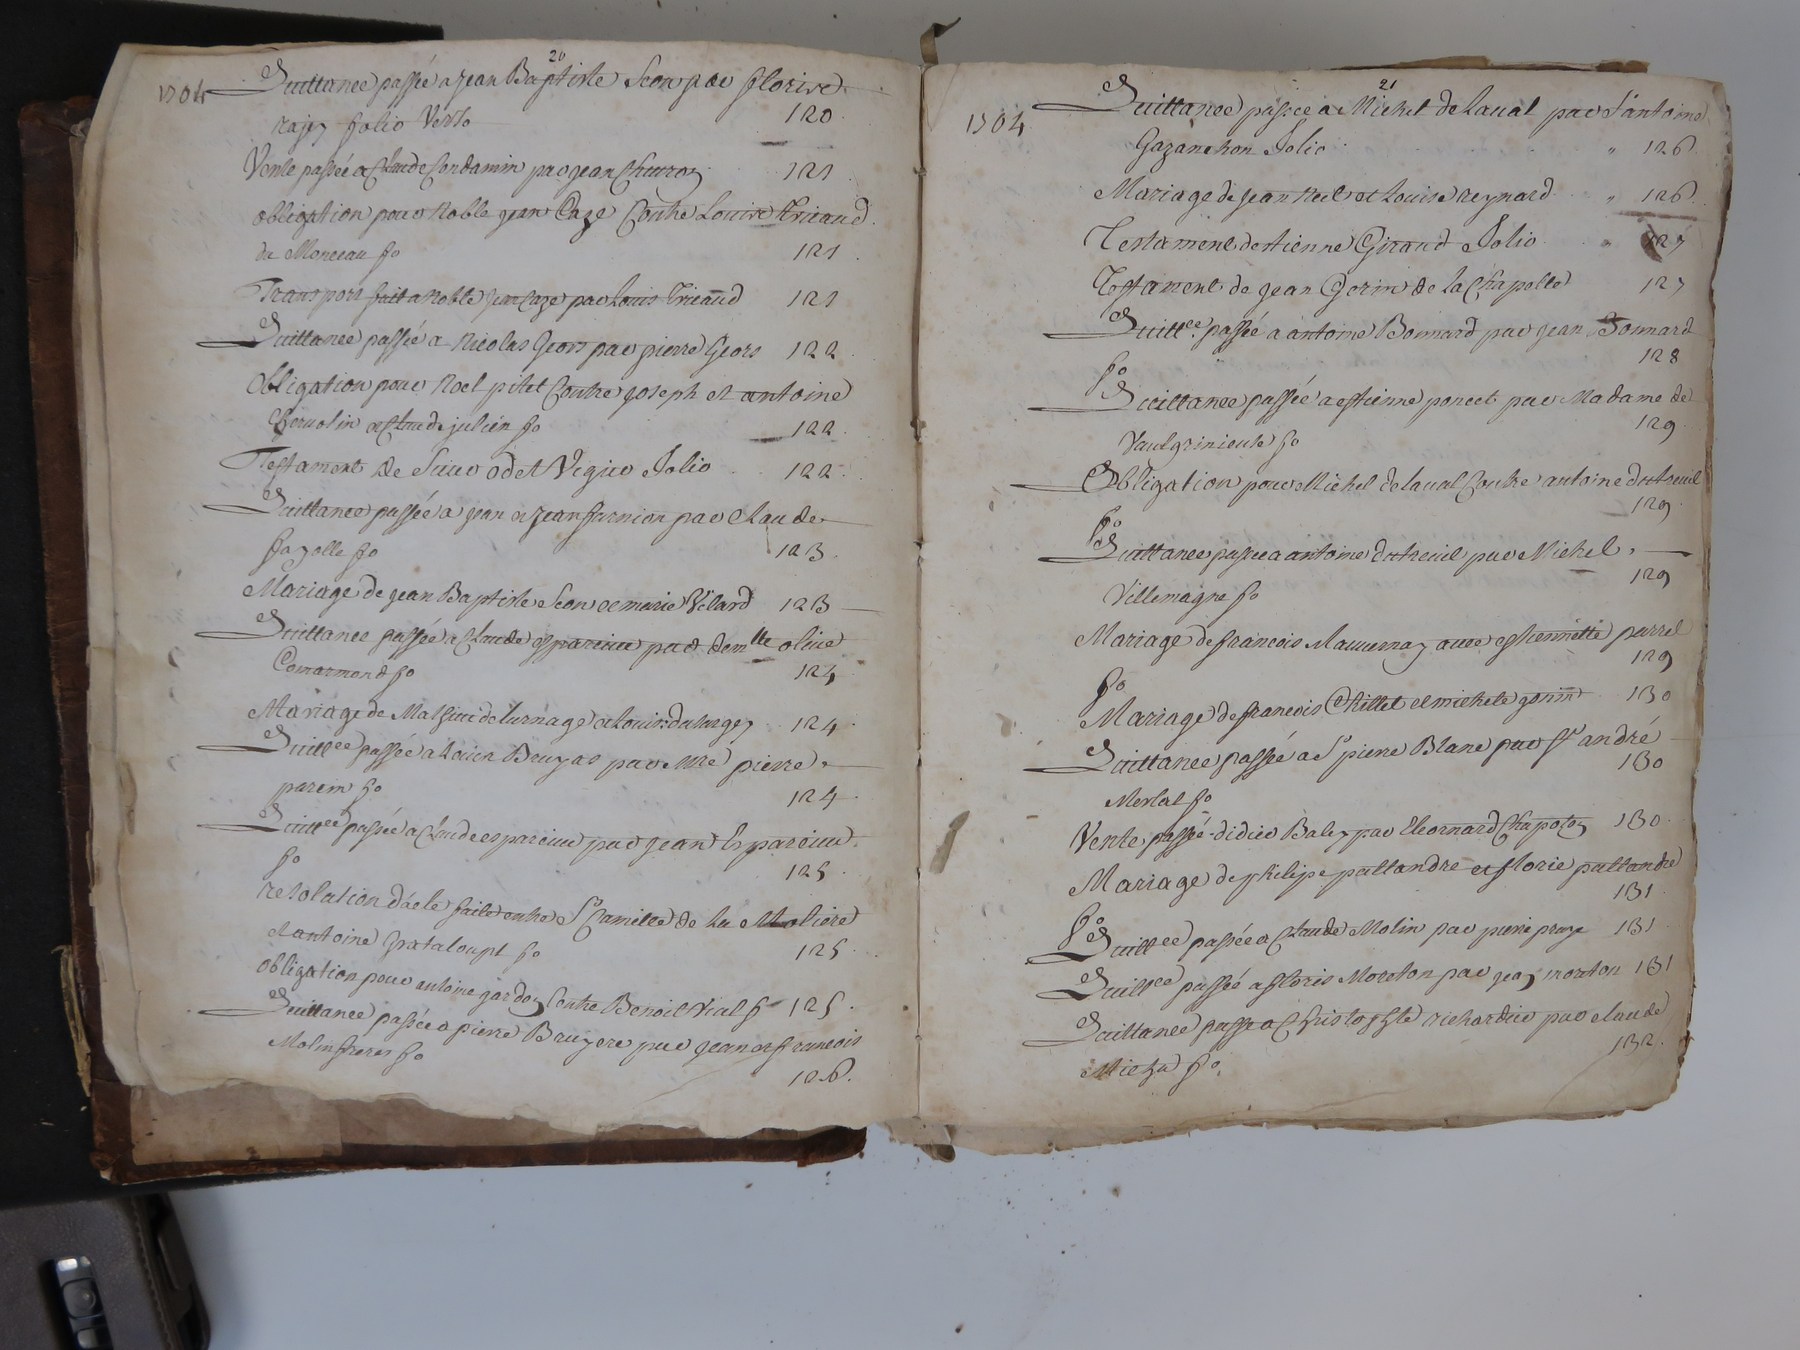 20
1704 Quittance passée a jean Baptiste Seon par florise
rajey folio Verso 120
Vente passée a Claude Condamin par jean Churroy 121
obligation pour Noble jean Caze Contre Louise Tricaud
du Monceau fo 121
Transport fait a Noble jean Caze par Louis Tricaud 121
Quittance passée a Nicolas Geors par pierre Geors 122
Obligation pour Noel pitet Contre joseph et antoine
et Claude julien fo 122
Testament de odet Vigier folio 122
Quittance passée a jean et jean furnion par Claude
fayolle fo 123
Mariage de jean Baptiste Seon et marie Vilard 123
Quittance passée a Claude esparcieu par demlle olive
Comarmond fo 124
Mariage de de Lurnage et Louise 124
Quittce passée a Louis Bruyas par Mre pierre
parein fo 124
Quittce passée a Claude esparcieu par jean Esparcieu
fo 125
resolution d'acte faite entre Sr Camille de La Moliere
et antoine grataloupt fo 125
obligation pour antoine jardoy Contre Benoit Vial fo 125
Quittance passée a pierre Bruyere par jean et francois
Molin freres fo 126
21
1704 Quittance passée a Michel de Laval par Sr antoine
Gazanchon folio 126
Mariage de jean Neel et Louise reynard 126
Testament d'estienne Giraud folio 127
Testament de jean Gorin de La Chapelle 127
Quittce passée a antoine Bonnard par jean Bonnard
fo 128
Quittance passée a estienne poncet par Madame de
Vaulgrinieuse fo 129
Obligation pour Michel de laval Contre antoine dutreuil
fo 129
Quittance passée a antoine dutreuil par Michel
Villemagne fo 129
Mariage de francois Mauvernay avec estiennette purrel
fo 129
Mariage de francois Chillet et michele gonin 130
Quittance passée a Sr pierre Blanc par Sr andré
Merlat fo 130
Vente passé didier Baley par Leonard Chapotoy 130
Mariage de philipe pallandre et florie pallandre
fo 131
Quittce passée a Claude Molin par pierre 131
Quittce passée a floris Moreton par jean moreton 131
Quittance passe a Christophle richardier par claude
fo 132